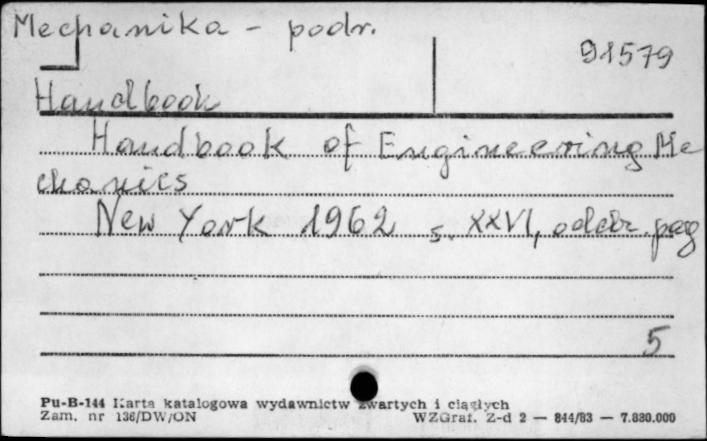 Mechanika - podr.
91579
Handbook
Handbook of Engineering Me
chanics
New York 1962 s. XXVI, odebr. pag
5
Pu-B-144 Karta katalogowa wydawnictw zwartych i ciągłych
Zam. nr 136/DW/ON WZGraf. Z-d 2 — 844/83 — 7.830.000